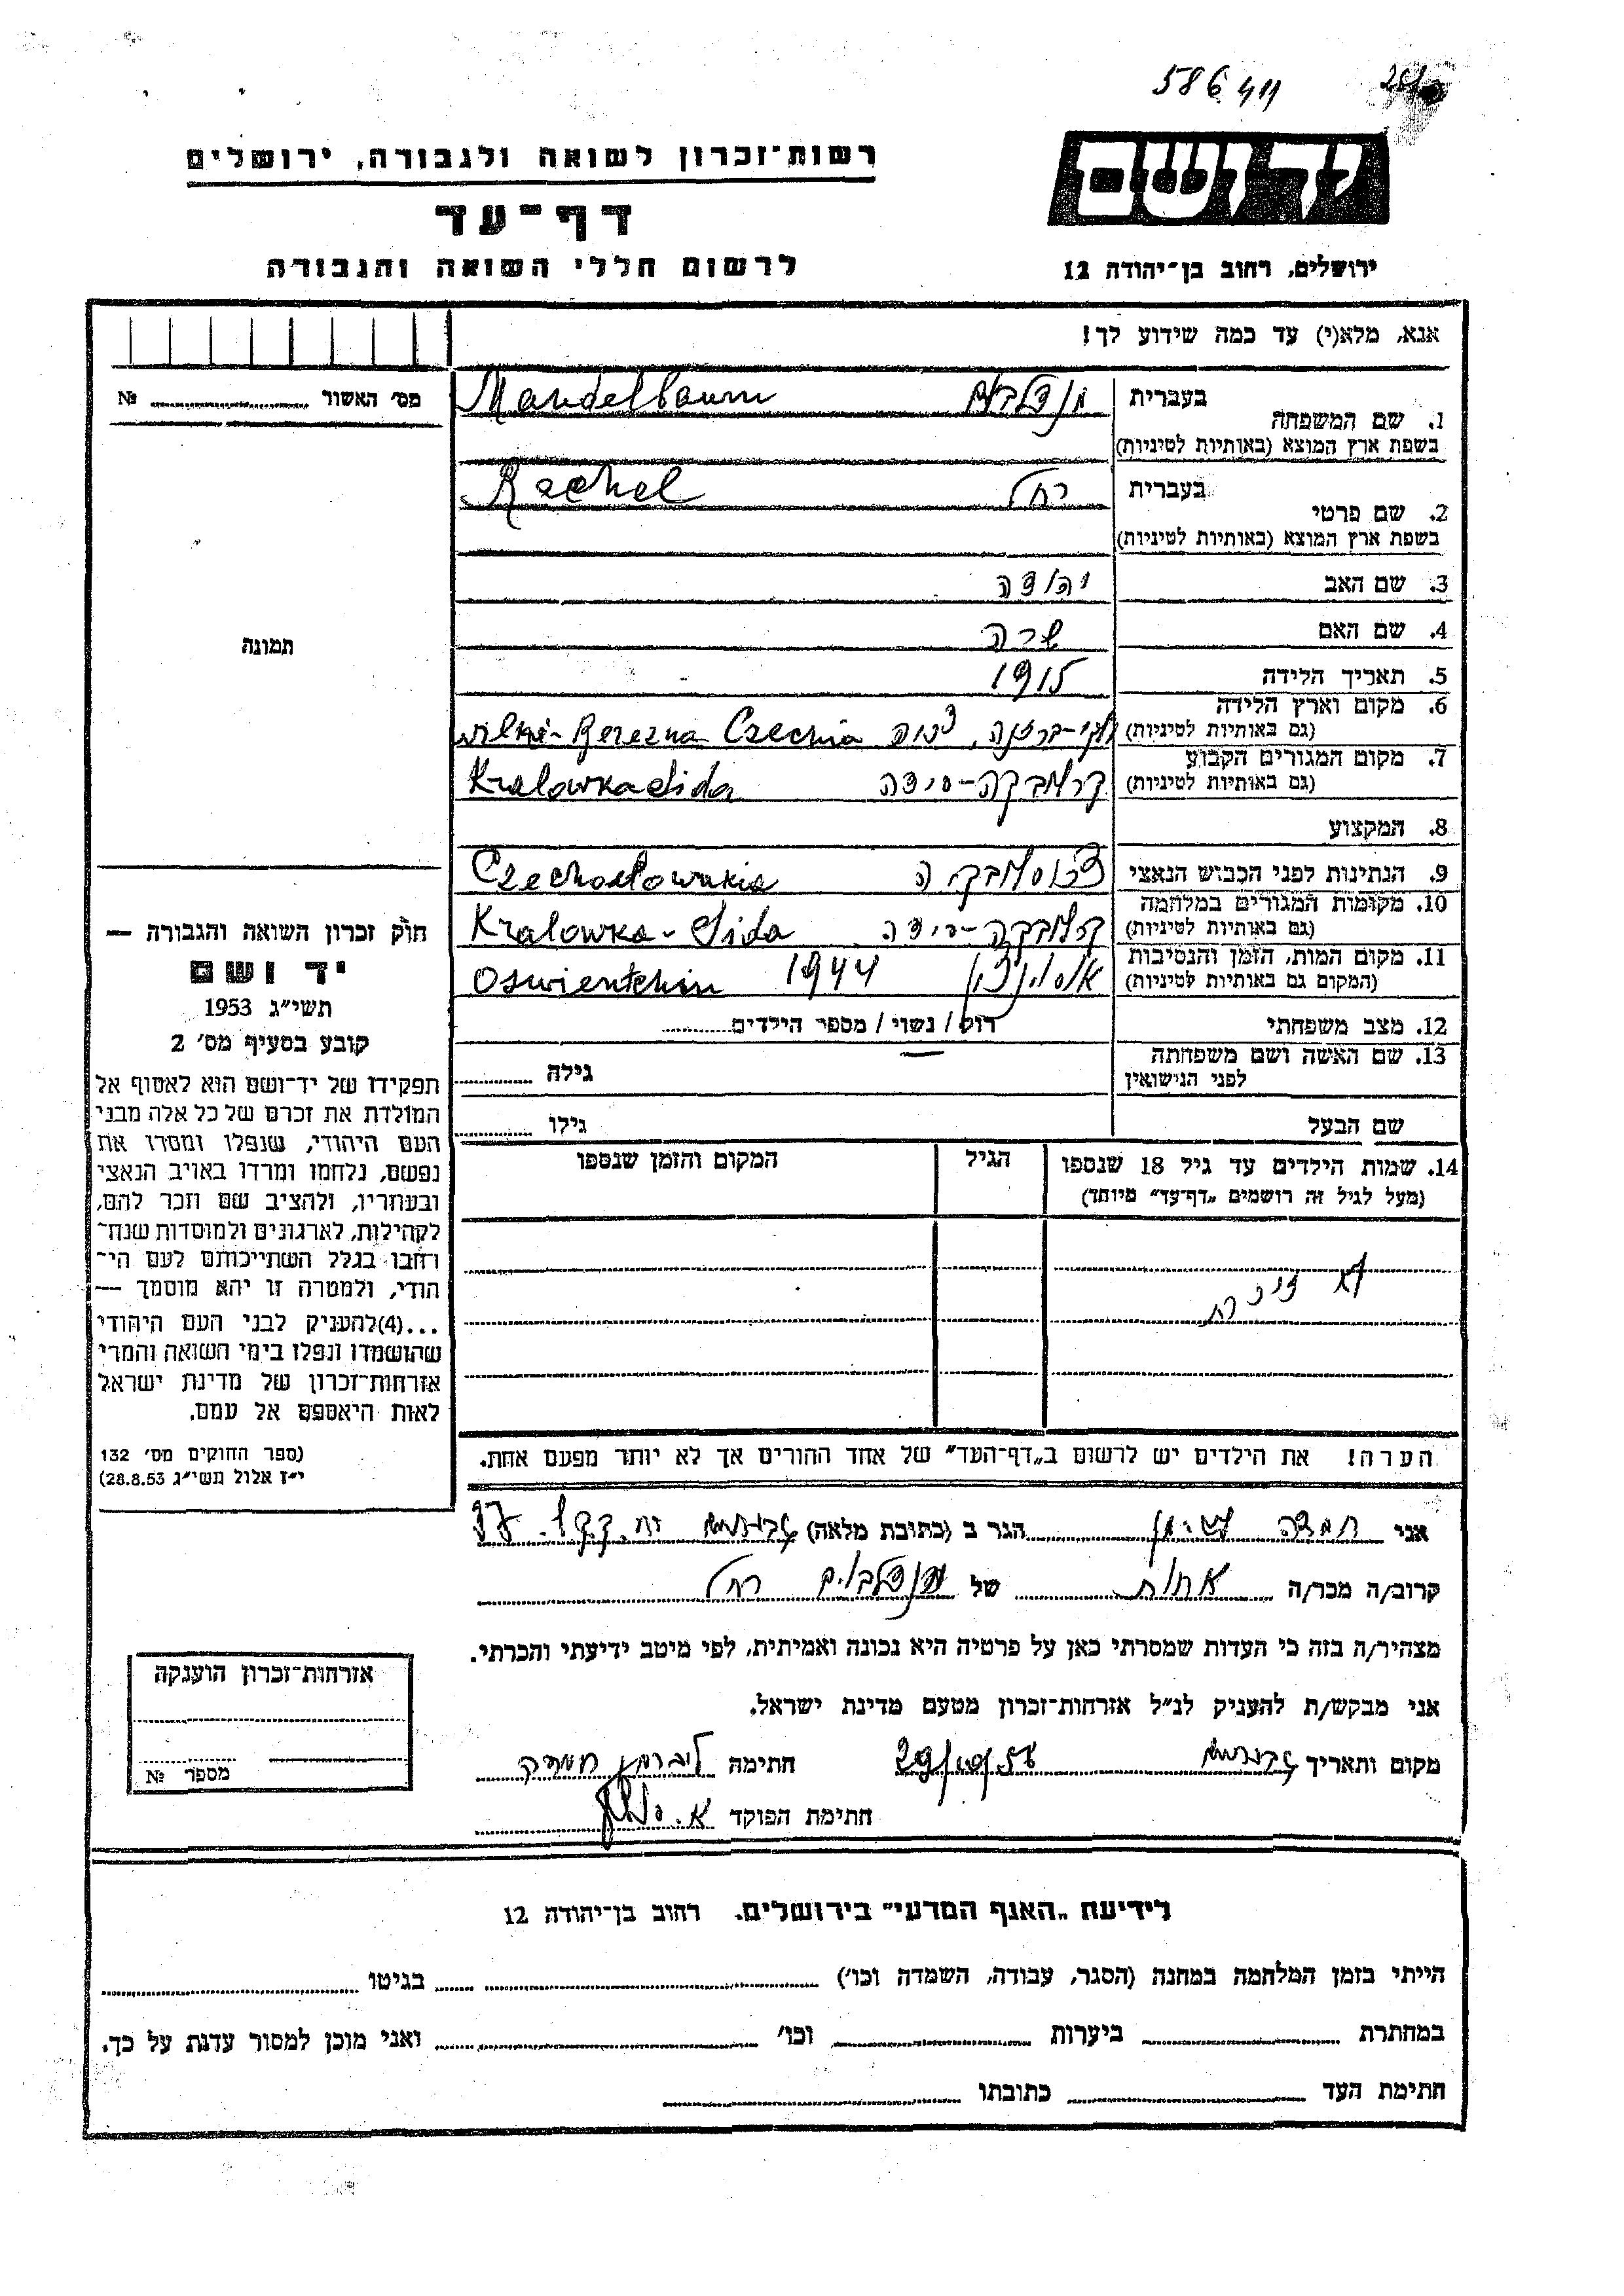 58641
יד ושם
רשות־זכרון לשואה ולגבורה, ירושלים
דף־עד
לרשום חללי השואה והגבורה
ירושלים, רחוב בן־יהודה 12
אנא, מלא(י) עד כמה שידוע לך!
מס׳ האשור № 
תמונה
1. שם המשפחה בעברית מנדלבוים Mandelbaum
בשפת ארץ המוצא (באותיות לטיניות)
2. שם פרטי בעברית רחל Rachel
בשפת ארץ המוצא (באותיות לטיניות)
3. שם האב יהודה
4. שם האם שרה
5. תאריך הלידה 1915
6. מקום וארץ הלידה וילקי-ברזנה, צ'כיה Wilki-Berezna Czechia
(גם באותיות לטיניות)
7. מקום המגורים הקבוע קרלובקה-סידה Kralowka Sida
(גם באותיות לטיניות)
8. המקצוע
9. הנתינות לפני הכבוש הנאצי צ'כוסלובקיה Czechoslowakia
10. מקומות המגורים במלחמה קרלובקה-סידה Kralowka-Sida
(גם באותיות לטיניות)
11. מקום המות, הזמן והנסיבות 1944 Oswientchin
(המקום גם באותיות לטיניות)
12. מצב משפחתי רווק / נשוי / מספר הילדים
13. שם האשה ושם משפחתה גילה
לפני הנישואין
שם הבעל גילו
14. שמות הילדים עד גיל 18 שנספו הגיל המקום והזמן שנספו
(מעל לגיל זה רושמים „דף־עד״ מיוחד)
לא
הערה! את הילדים יש לרשום ב„דף־העד״ של אחד ההורים אך לא יותר מפעם אחת.
חוק זכרון השואה והגבורה —
יד ושם
תשי״ג 1953
קובע בסעיף מס׳ 2
תפקידו של יד־ושם הוא לאסוף אל
המולדת את זכרם של כל אלה מבני
העם היהודי, שנפלו ומסרו את
נפשם, נלחמו ומרדו באויב הנאצי
ובעוזריו, ולהציב שם וזכר להם,
לקהילות, לארגונים ולמוסדות שנח־
רחבו בגלל השתייכותם לעם הי־
הודי, ולמטרה זו יהא מוסמך —
...(4)להעניק לבני העם היהודי
שהושמדו ונפלו בימי השואה והמרי
אזרחות־זכרון של מדינת ישראל
לאות היאספם אל עמם.
(ספר החוקים מס׳ 132
י״ז אלול תשי״ג 28.8.53)
אני חמדה הגר ב (כתובת מלאה)
קרוב/ה מכר/ה אחות של מנדלבוים רחל
מצהיר/ה בזה כי העדות שמסרתי כאן על פרטיה היא נכונה ואמיתית, לפי מיטב ידיעתי והכרתי.
אני מבקש/ת להעניק לנ״ל אזרחות־זכרון מטעם מדינת ישראל.
מקום ותאריך חתימה
חתימת הפוקד
אזרחות־זכרון הוענקה
מספר №
לידיעת „האגף המדעי״ בירושלים. רחוב בן־יהודה 12
הייתי בזמן המלחמה במחנה (הסגר, עבודה, השמדה וכו׳) בגיטו
במחתרת ביערות וכו׳ ואני מוכן למסור עדות על כך.
חתימת העד כתובתו